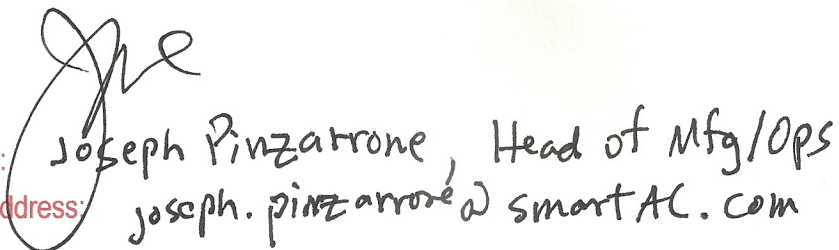 Joe
: Joseph Pinzarrone, Head of Mfg/Ops
ddress: joseph.pinzarrone@smartAC.com